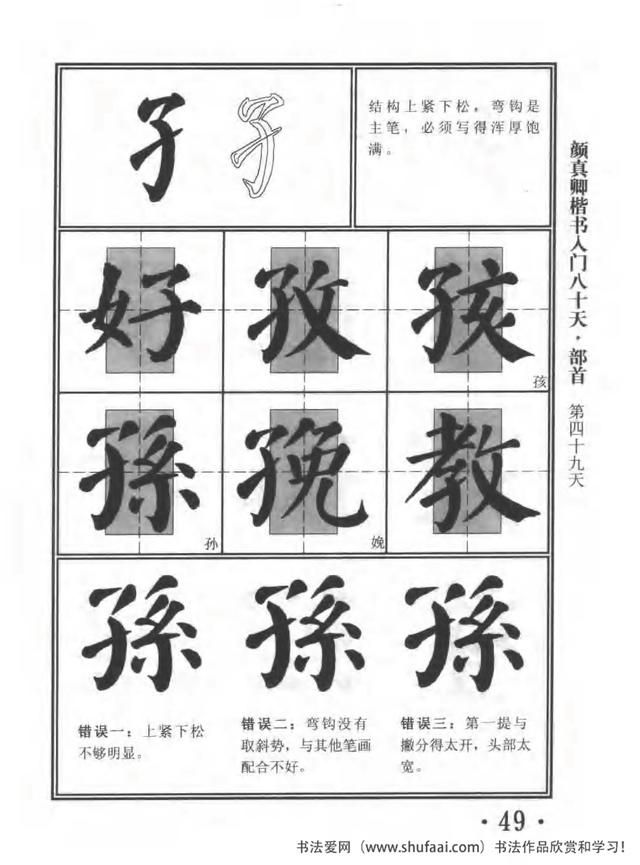 孑
结构上紧下松，弯钩是
主笔，必须写得浑厚饱
满。
颜真卿楷书入门八十天·部首 第四十九天
好 孜 孩
孩
孫 㝃 教
孙 娩
孫 孫 孫
错误一：上紧下松
不够明显。
错误二：弯钩没有
取斜势，与其他笔画
配合不好。
错误三：第一提与
撇分得太开，头部太
宽。
·49·
书法爱网（www.shufaai.com）书法作品欣赏和学习！